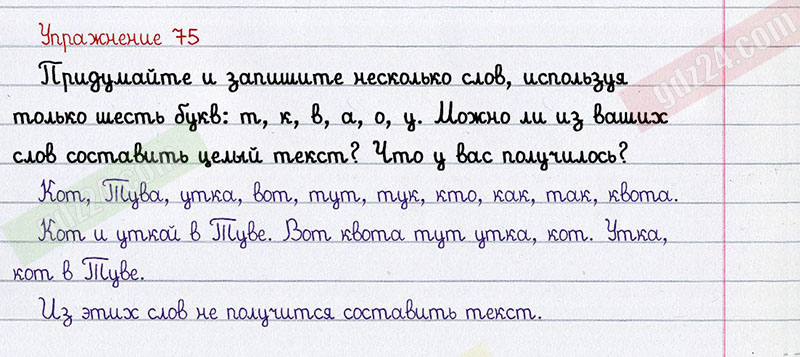 Упражнение 75
Придумайте и запишите несколько слов, используя
только шесть букв: т, к, в, а, о, у. Можно ли из ваших
слов составить целый текст? Что у вас получилось?
Кот, Тува, утка, вот, тут, тук, кто, как, так, квота.
Кот и уткой в Туве. Вот квота тут утка, кот. Утка,
кот в Туве.
Из этих слов не получится составить текст.
gdz24.com
gdz24.com